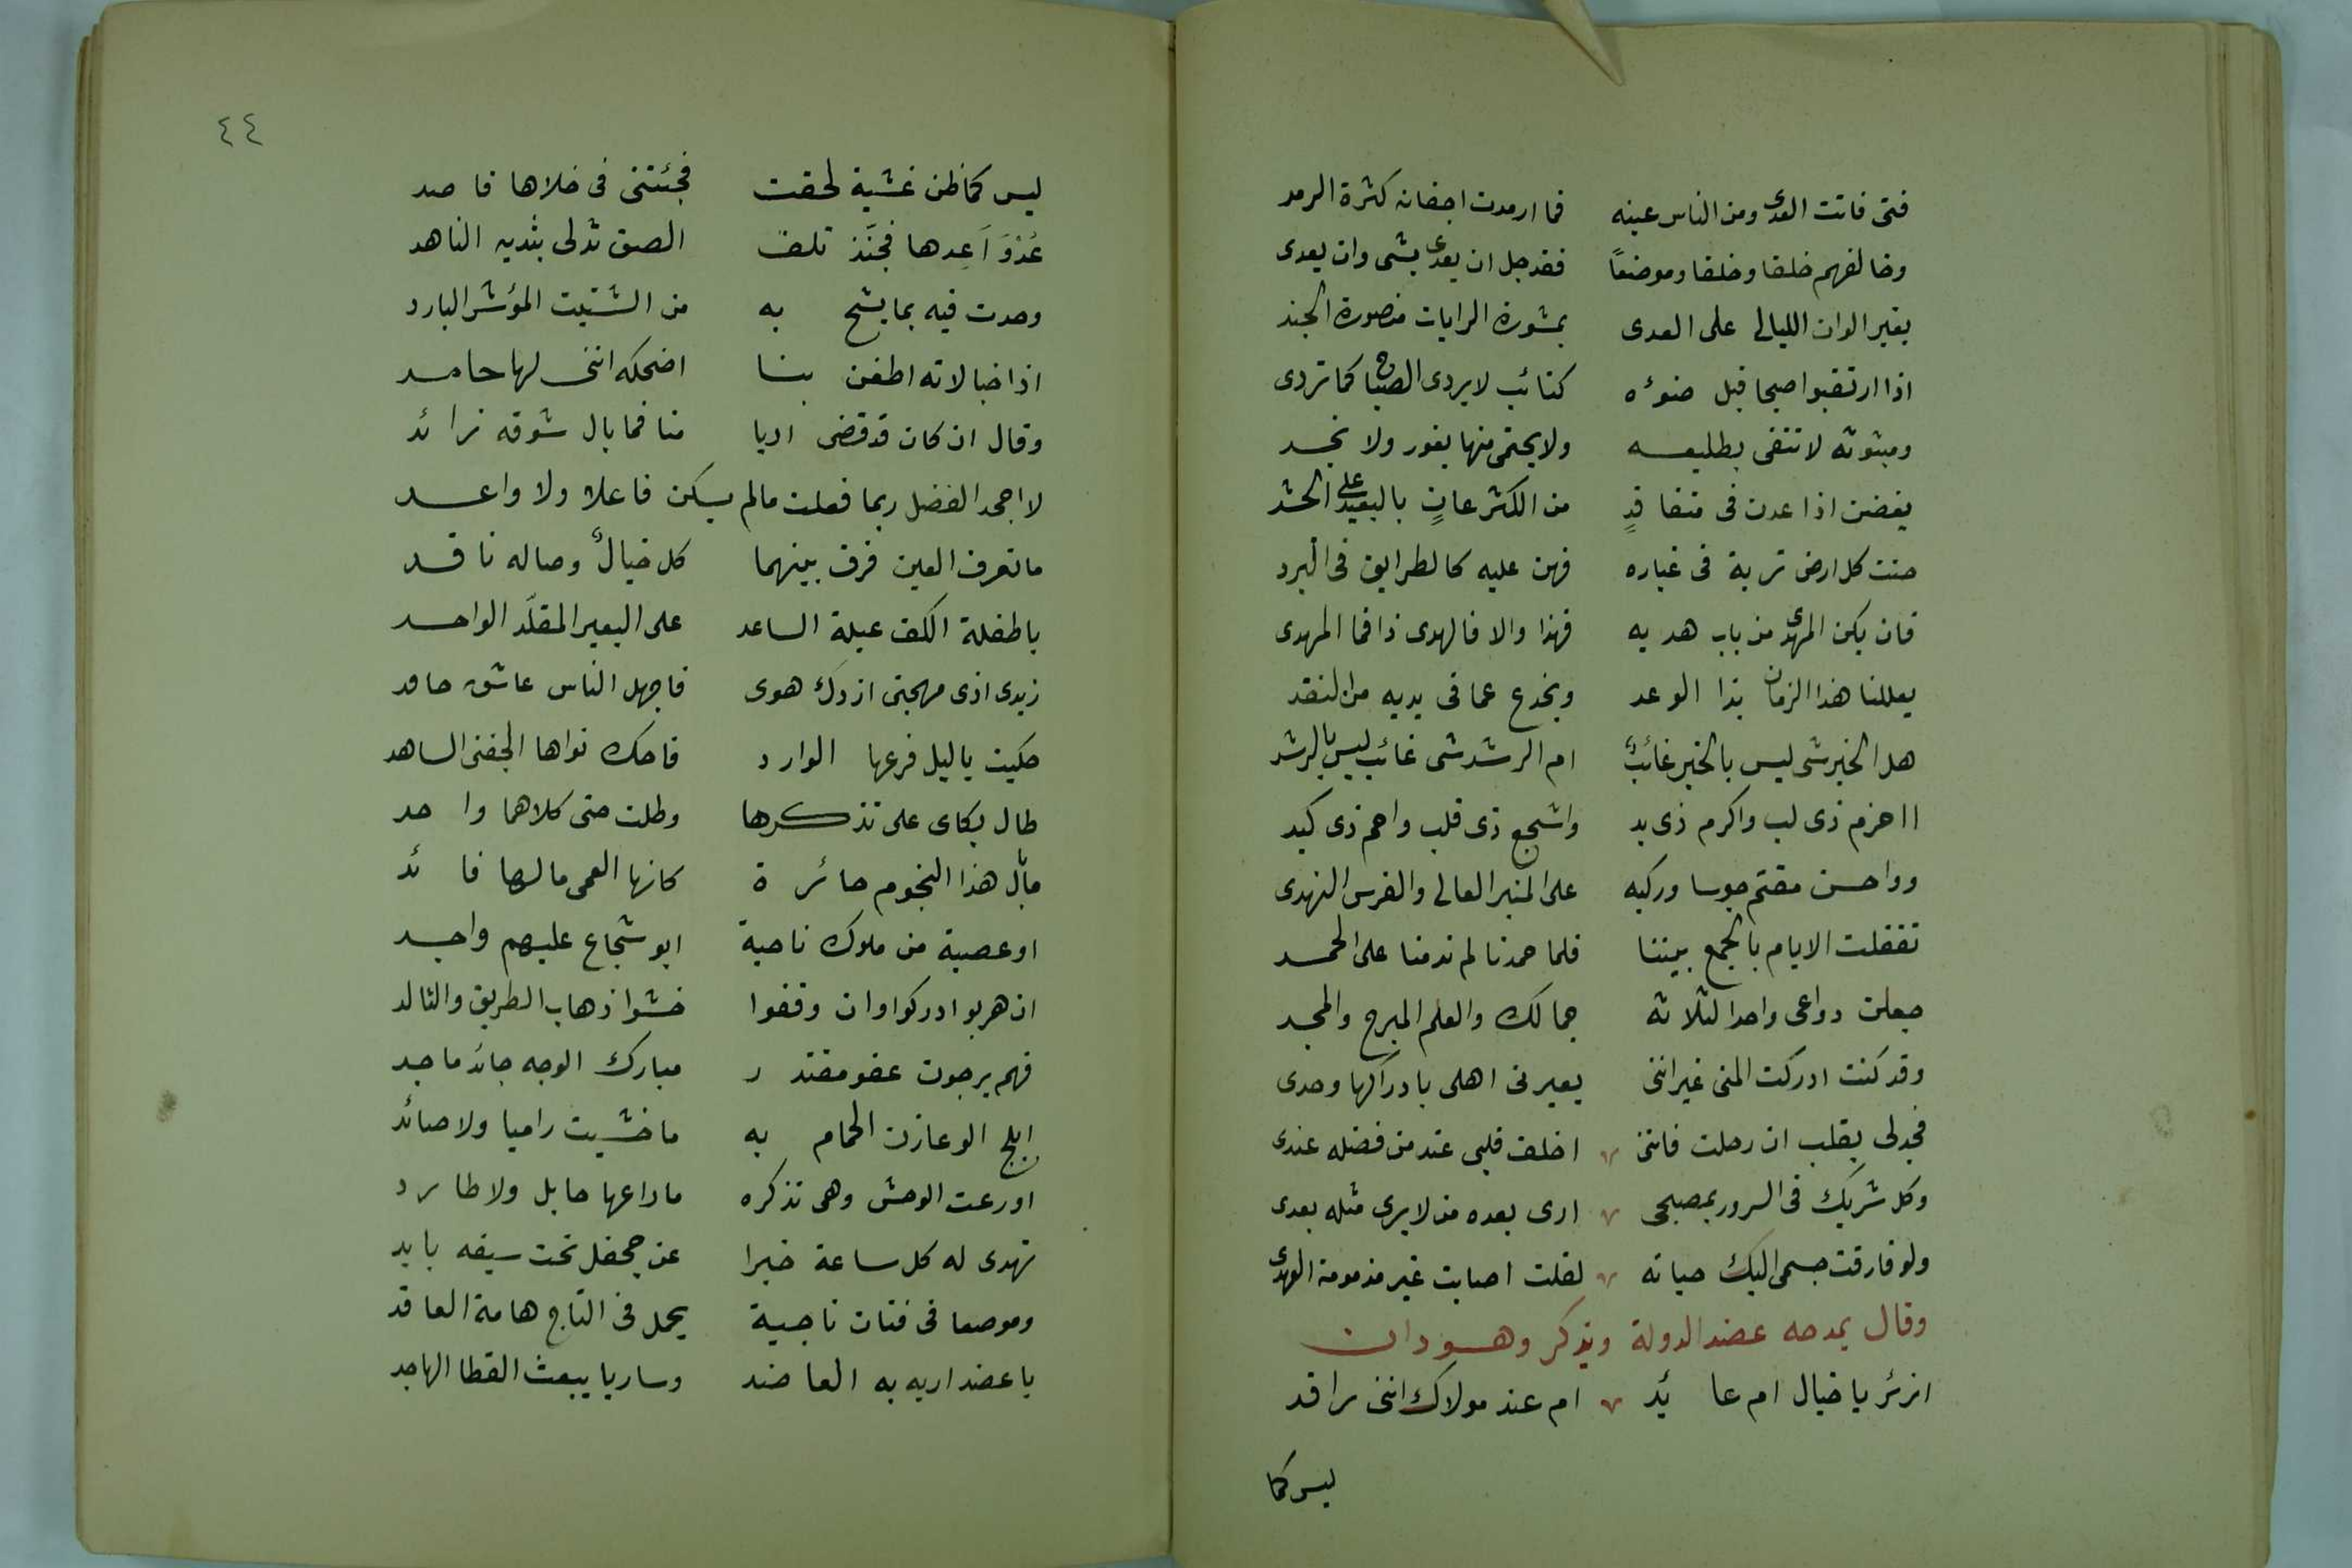 فتى فاتت العدى ومن الناس عينه فما ارمدت اجفانه كثرة الرمد
وخالفهم خلقا وخلقا وموضعًا فقد جل ان يعدى بشى وان يعدى
يغير الوان الليالى على العدى بمشورة الرايات منصورة الجند
اذا ارتقبوا صبحا قبل ضوءه كتائب لا يردى الصباح كما تردى
ومبثوثه لا تتقى بطليعه ولا يحتمى منها بغور ولا نجد
يغضن اذا عدن فى متفاقدٍ من الكثر عانٍ بالبعيد على الحشد
حنت كل ارض تربة فى غباره فهن عليه كالطرايق فى البرد
فان يكن المهدى من باب هديه فهذا والا فالهدى ذا فما المهدى
يعللنا هذا الزمان بذا الوعد ويخدع عما فى يديه من النقد
هل الخير شى ليس بالخير غائبٌ ام الرشد شى غائب ليس بالرشد
ااحزم ذى لب واكرم ذى يد واشجع ذى قلب وارحم ذى كبد
وواحسن مقتم جوسا وركبه على المنبر العالى والفرس النهدى
تفقلت الايام بالجمع بيننا فلما حمدنا لم ندمنا على الحمد
جعلن دواعى واحد الثلاثه جمالك والعلم المبرح والمجد
وقد كنت ادركت المنى غير اننى يعيرنى اهلى بادراكها وحدى
فجدلى بقلب ان رحلت فاننى اخلف قلبى عند من فضله عندى
وكل شريك فى السرور بمصبحى ارى بعده من لا يرى مثله بعدى
ولو فارقت جسمى اليك حياته لقلت اصابت غير مذمومة العهدى
وقال يمدحه عضد الدولة ويذكر وهسودان
ازئر يا خيال ام عائد ام عند مولاك اننى راقد
ليس كما
٤٤
ليس كما ظن غشية لحقت فجئتنى فى خلاها قاصد
عُدْوَ اَعِدها فجنَّذ تلف الصق ثدلى بثديه الناهد
وجدت فيه بما يشح به من الشتيت المؤشر البارد
اذا خبالاته اطفن بنا اضحكه اننى لها حامد
وقال ان كان قد قضى اربا منا فما بال شوقه زائد
لا اجحد الفضل ربما فعلت مالم يكن فاعلا ولا واعد
ما تعرف العين فرق بينهما كل خيالٌ وصاله نافد
يا طفلة الكف عبلة الساعد على البعير المقلَّد الواحد
زيدى اذى مهجتى ازدك هوى فاجهل الناس عاشق حاقد
حكيت ياليل فرعها الوارد فاحك نواها لجفنى الساهد
طال بكاى على تذكرها وطلت حتى كلاهما واحد
مابال هذا النجوم حائرة كانها العمى مالها قائد
او عصبة من ملوك ناحية ابو شجاع عليهم واجد
ان هربوا ادركوا وان وقفوا خشوا ذهاب الطريق والتالد
فهم يرجون عفو مقتدر مبارك الوجه جائد ماجد
ابلج الو عاذت الحمام به ما خشيت راميا ولا صائد
اورعت الوحش وهى تذكره ما راعها حابل ولا طارد
تهدى له كل ساعة خبرا عن جحفل تحت سيفه بايد
وموضعا فى فتان ناجية يحمل فى التاج هامة العاقد
يا عضد اريه به العاضد وساريا يبعث القطا الهاجد